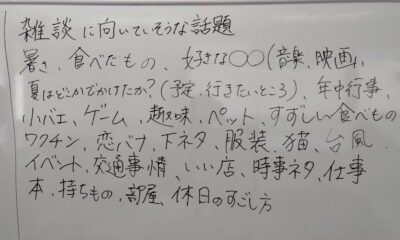 雑談に向いていそうな話題
暑さ、食べたもの、好きな○○(音楽、映画)、
夏はどこかでかけたか?(予定、行きたいところ)、年中行事、
小バエ、ゲーム、趣味、ペット、すずしい食べもの
ワクチン、恋バナ、下ネタ、服装、猫、台風
イベント、交通事情、いい店、時事ネタ、仕事
本、持ちもの、部屋、休日のすごし方